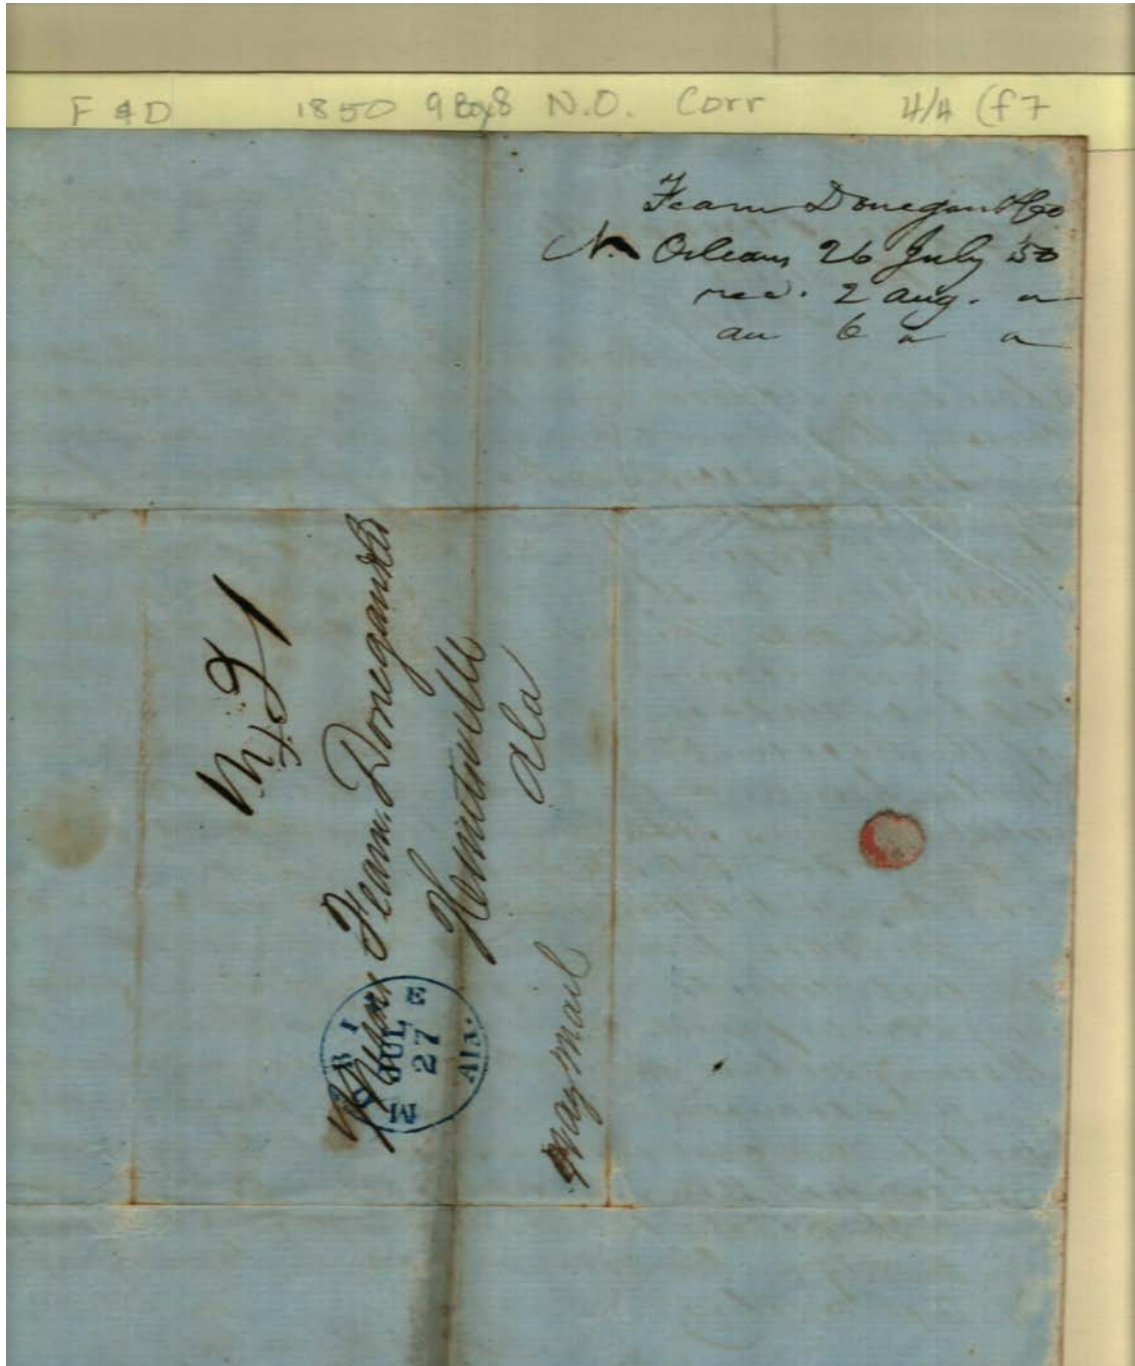 F & D 1850 9 Box 8 N.O. Corr 4/4 (f7
Fearn Donegan & Co
N. Orleans 26 July 50
rec. 2 Aug. "
an 6 " "
Messrs Fearn. Donegan & Co
Huntsville
Ala
Way Mail
MOBILE
JUL
27
Ala.